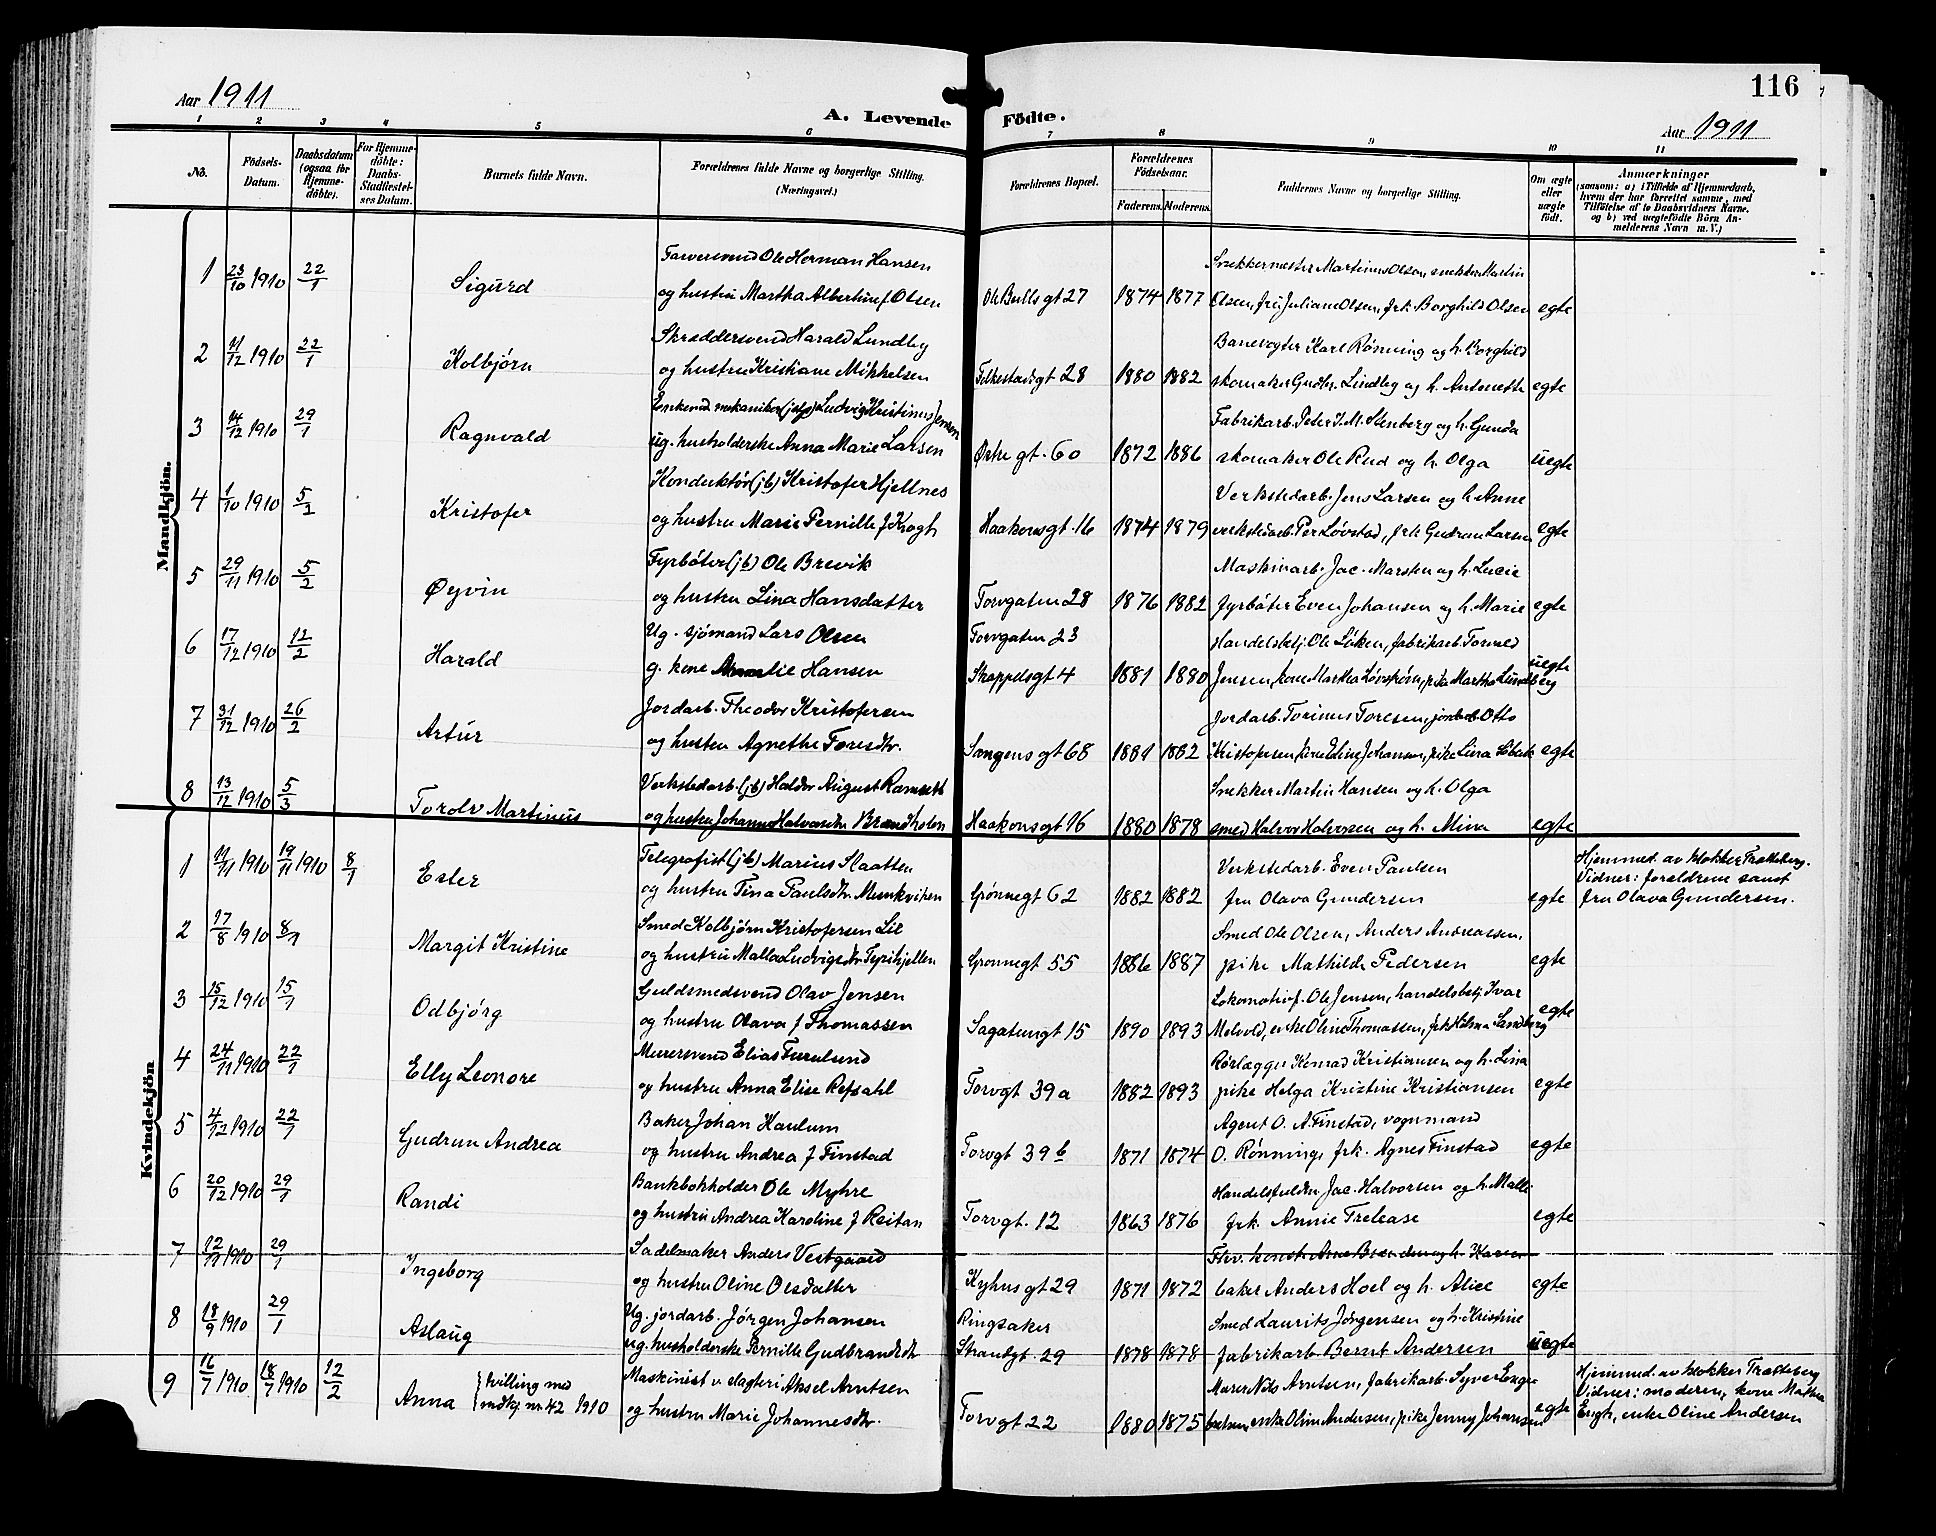 116
Aar 1911
A. Levende Födte.
Aar 1911
1 2 3 4 5 6 7 8 9 10 11
No.
Födsels-Datum.
Daabsdatum (ogsaa for Hjemmedöbte).
For Hjemmedöbte: Daabs-Stadfæstelses Datum.
Barnets fulde Navn.
Forældrenes fulde Navne og borgerlige Stilling. (Næringsvei.)
Forældrenes Bopæl.
Forældrenes Födselsaar.
Faderens. Moderens.
Faddernes Navne og borgerlige Stilling.
Om ægte eller uægte födt.
Anmærkninger
(saasom: a) i Tilfælde af Hjemmedaab, hvem der har forrettet samme, med Tilföielse af to Daabsvidners Navne, og b) ved uægtefödte Börn Anmelderens Navn m. V.)
Mandkjön.
Farversvend Ole Herman Hansen
Snekkermester Martinus Olsen, snekker Martin
1 23/10 1910 22/1 Sigurd og hustru Martha Albertine f Olsen Ole Bulls gt 27 1874 1877 Olsen, fru Juliane Olsen, frk Borghild Olsen egte
Skræddersvend Harald Lundby
Banevogter Karl Rønning og h. Borghild
2 11/12 1910 22/1 Kolbjörn og hustru Kristiane Mikkelsen Folkestadsgt 28 1880 1882 skomaker Gudbr. Lundby og h. Antonette egte
Enkemand mekaniker (jb) Ludvig Kristinus Jensen
Fabrikarb. Peter J. M. Stenberg og h. Gunda
3 14/12 1910 29/1 Ragnvald ug. husholderske Anna Marie Larsen Østre gt. 60 1872 1886 skomaker Ole Rud og h. Olga uegte
Konduktør (jb) Kristofer Hjellnes
Verkstedarb. Jens Larsen og h. Anne
4 1/10 1910 5/2 Kristofer og hustru Marie Pernille f Krogh Haakonsgt. 16 1874 1879 verkstedarb. Per Løvstad, frk Gudrun Larsen egte
Fyrbøter (jb) Ole Brevik
Maskinarb. Jac. Marsten og h. Lucie
5 29/11 1910 5/2 Øyvin og hustru Lina Hansdatter Torvgaten 28 1876 1882 fyrbøter Even Johansen og h. Marie egte
Ug. sjømand Lars Olsen Torvgaten 23
Handelsbetj. Ole Løken, fabrikarb. Tormod
6 17/12 1910 12/2 Harald g. kone Amalie Hansen Skappelsgt 4 1881 1880 Jensen, kone Martha Løvstrøm, pike Martha Lundberg uegte
Jordarb. Theodor Kristofersen
Jordarb. Torinus Toresen, jordarb Otto
7 31/12 1910 26/2 Artur og hustru Agnethe Toresdtr. Vangensgt 68 1881 1882 Kristofersen, kone Eline Johansen, pike Lina egte
Verkstedarb. (jb) Haldor August Ramseth
Snekker Martin Hansen og h. Olga
8 13/12 1910 5/3 Torolv Martinus og hustru Johanne Halvorsdtr Brændholen Haakonsgt 16 1880 1878 smed Halvor Halvorsen og h. Mina egte
Kvindekjön
Telegrafist (jb) Marius Slaatten
Verkstedarb. Even Paulsen
Hjemmed. av klokker Trætteberg.
Vidner: forældrene samt
1 11/11 1910 19/11 1910 8/1 Ester og hustru Tina Paulsdtr Munkviken Grønnegt 62 1882 1882 fru Olava Gundersen egte fru Olava Gundersen.
Smed Kolbjørn Kristofersen Lie
Smed Ole Olsen, Anders Andreassen,
2 17/8 1910 8/1 Margit Kristine og hustru Malla Ludvigsdtr Tyrihjellen Grønnegt 55 1886 1887 pike Mathilde Pedersen egte
Guldsmedsvend Olav Jensen
Lokomotivf. Ole Jensen, handelsbetj. Ivar
3 15/12 1910 15/1 Odbjörg og hustru Olava f Thomassen Sagatungt 15 1890 1893 Melvold, enke Oline Thomassen, frk Hilma Sandberg egte
Murersvend Elias Furulund
Rørlægger Konrad Kristiansen og h. Lina
4 24/11 1910 22/1 Elly Leonore og hustru Anna Elise Refsahl Torvgt 39 a 1882 1893 pike Helga Kristine Kristiansen egte
Baker Johan Haulum
Agent O. A. Finstad, vognmand
5 4/12 1910 22/1 Gudrun Andrea og hustru Andrea f Finstad Torvgt 39 b 1871 1874 O. Rønning, frk. Agnes Finstad egte
Bankbokholder Ole Myhre
Handelsfuldm Jac. Halvorsen og h. Malli
6 20/12 1910 29/1 Randi og hustru Andrea Karoline f Reitan Torvgt. 12 1863 1876 frk. Annie Trelease egte
Sadelmaker Anders Vestgaard
Elev. konst. Arne Brænden og h. Karen
7 12/11 1910 29/1 Ingeborg og hustru Oline Olsdatter Kyhusgt 29 1871 1872 baker Anders Hoel og h. Alice egte
Ug. jordarb. Jørgen Johansen Ringsaker
Smed Laurits Jørgensen og h. Kristine
8 18/9 1910 29/1 Aslaug ug. husholderske Pernille Gudbrandsdtr Strandgt. 29 1878 1878 fabrikarb. Bernt Andersen uegte
Maskinist v. slagteri Aksel Arntsen
Murer Nils Arntsen, fabrikarb. Syver Enger
Hjemmed. av klokker Trætteberg
Vidner: moderen, kone Mathea
9 16/7 1910 18/7 1910 12/2 Anna {tvilling med mdkj. nr. 42 1910 og hustru Marie Johannesdtr. Torvgt 22 1880 1875 enke Oline Andersen, pike Jenny Johansen egte Engh, enke Oline Andersen